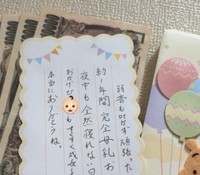 弱音も吐かず頑張った
約1年間完全母乳お
夜中も全然寝れない日
おかげで
もすくすく成長
本当にありがとうね。